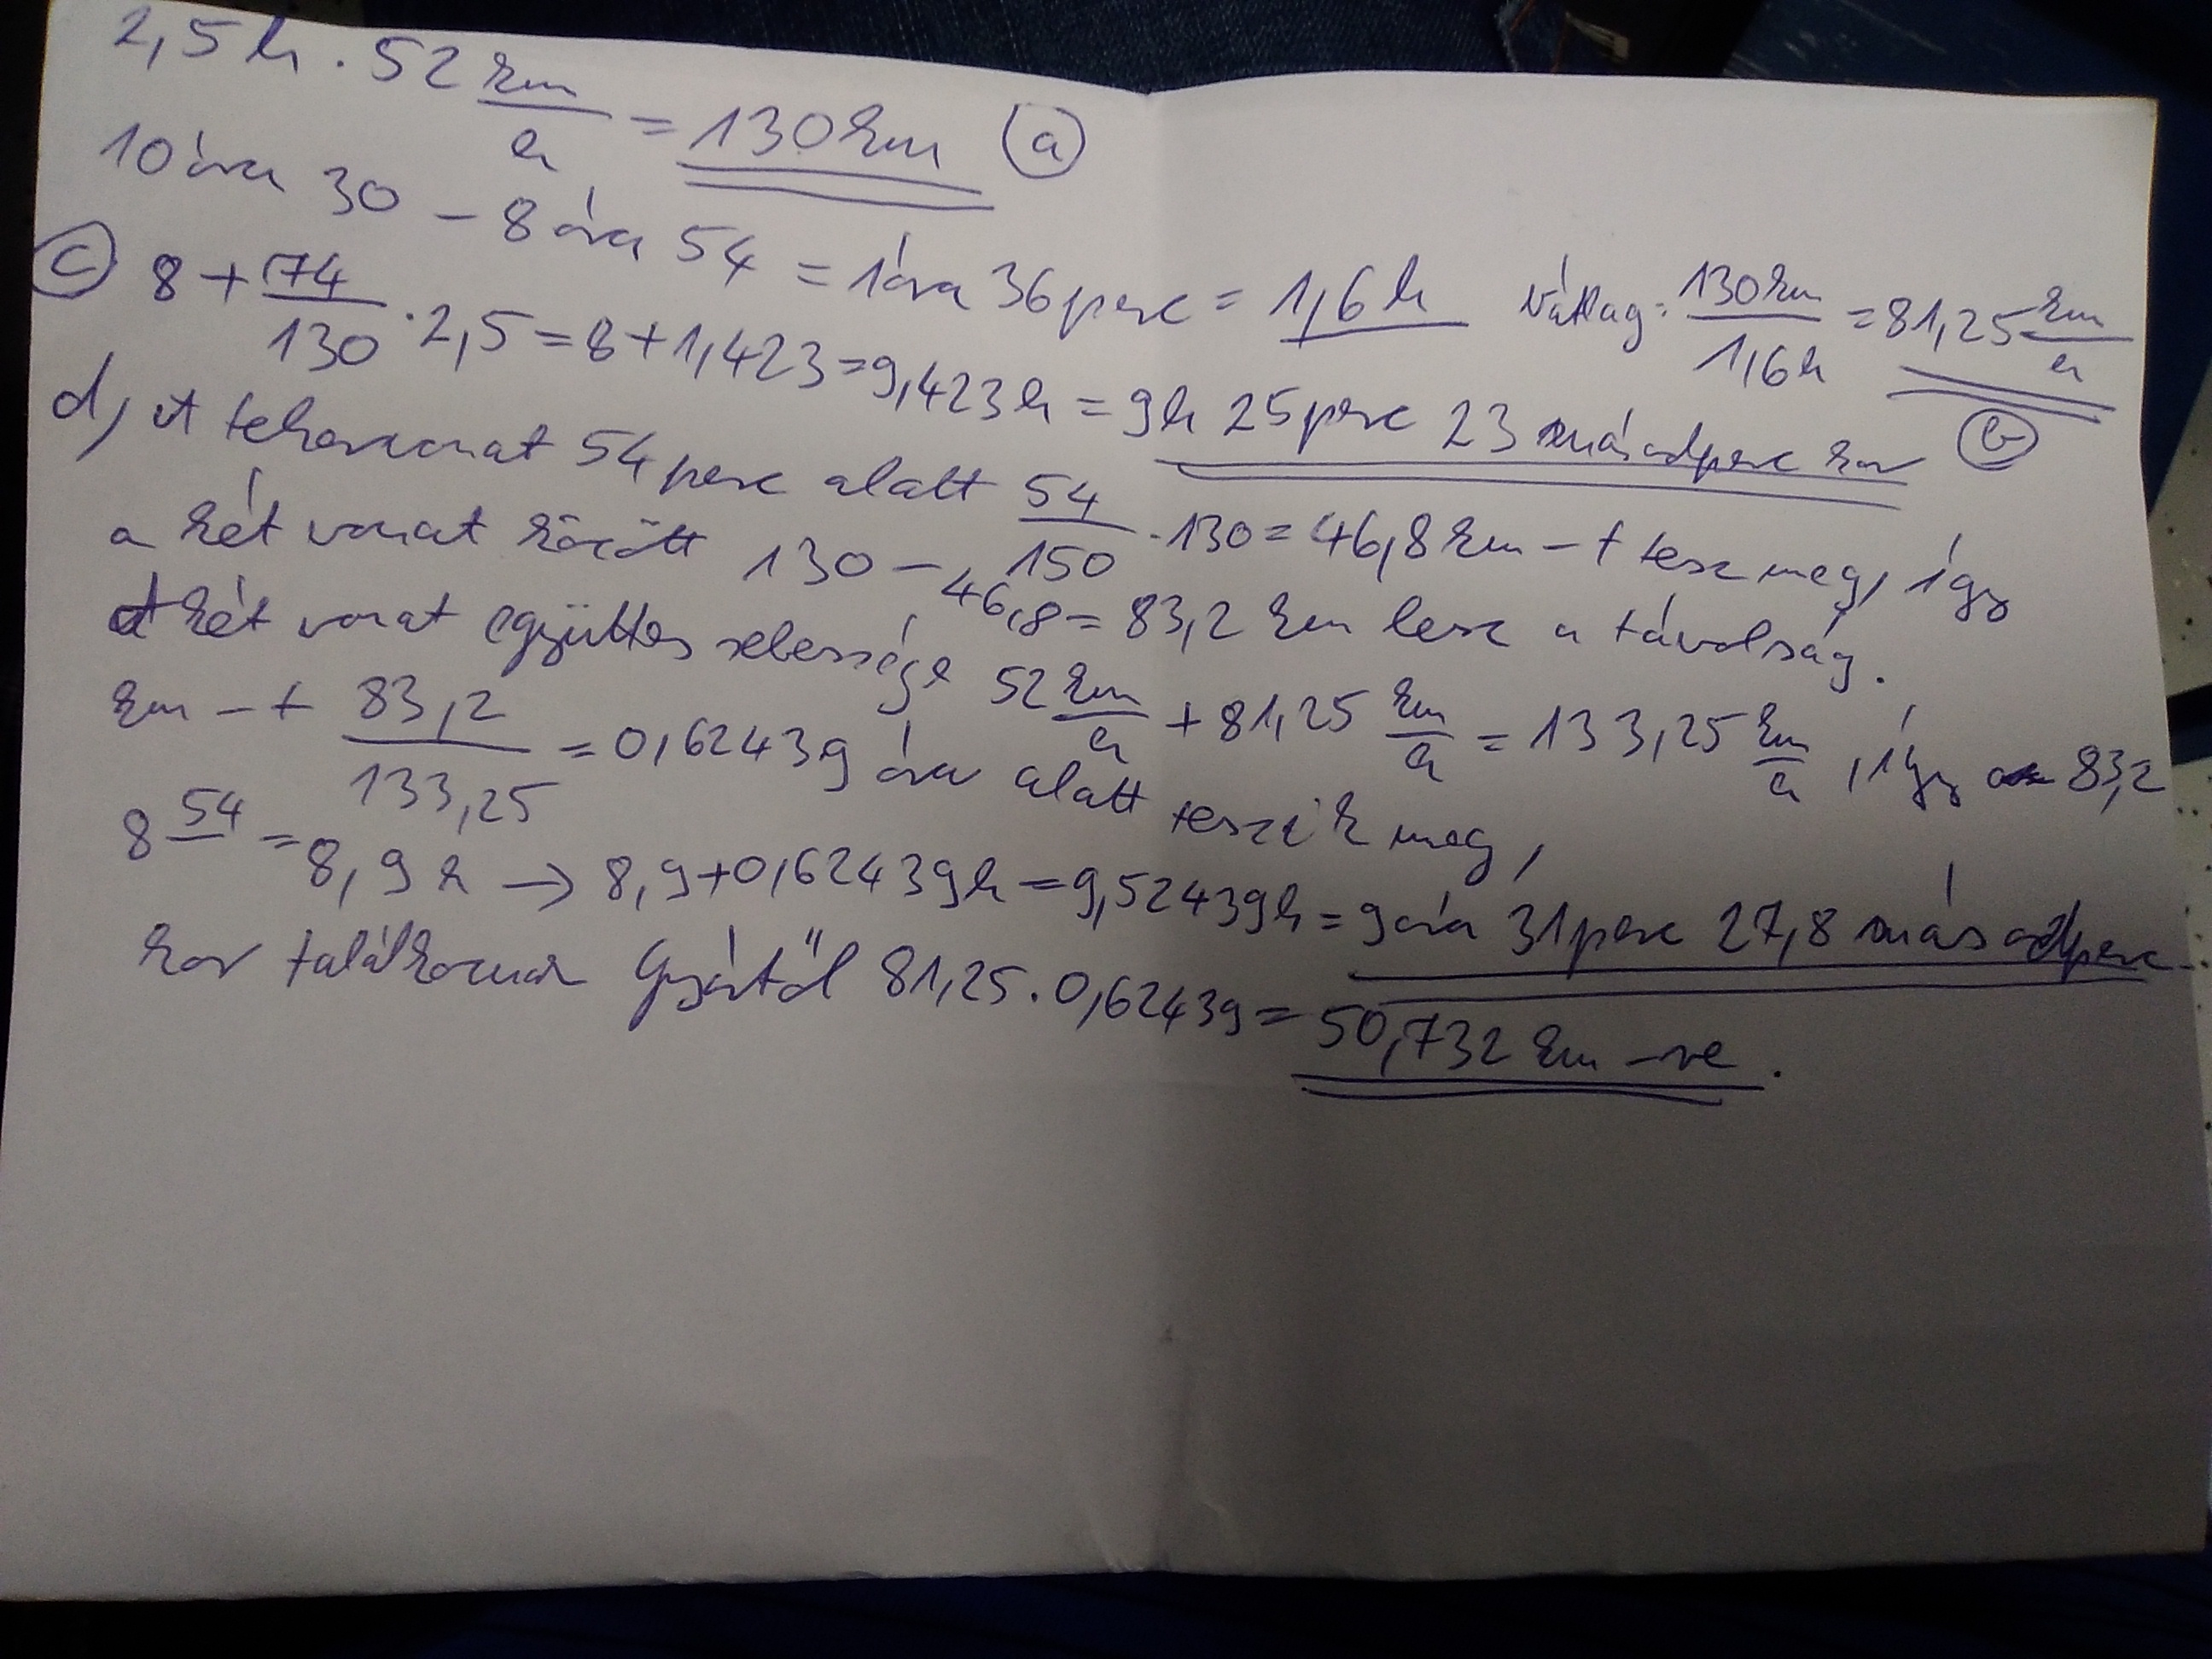 2,5 h · 52 km/h = 130 km (a)
10 óra 30 - 8 óra 54 = 1 óra 36 perc = 1,6 h Vátlag: 130 km/1,6 h = 81,25 km/h (b)
(c) 8 + 74/130 · 2,5 = 8 + 1,423 = 9,423 h = 9h 25 perc 23 másodperc kor
d, A tehervonat 54 perc alatt 54/150 · 130 = 46,8 km-t tesz meg, így
a két vonat között 130 - 46,8 = 83,2 km lesz a távolság.
A két vonat együttes sebessége 52 km/h + 81,25 km/h = 133,25 km/h, így 83,2
km-t 83,2/133,25 = 0,62439 óra alatt teszik meg,
8 54 = 8,9 h → 8,9 + 0,62439 h = 9,52439 h = 9 óra 31 perc 27,8 másodperc-
kor találkoznak Győrtől 81,25 · 0,62439 = 50,732 km-re.